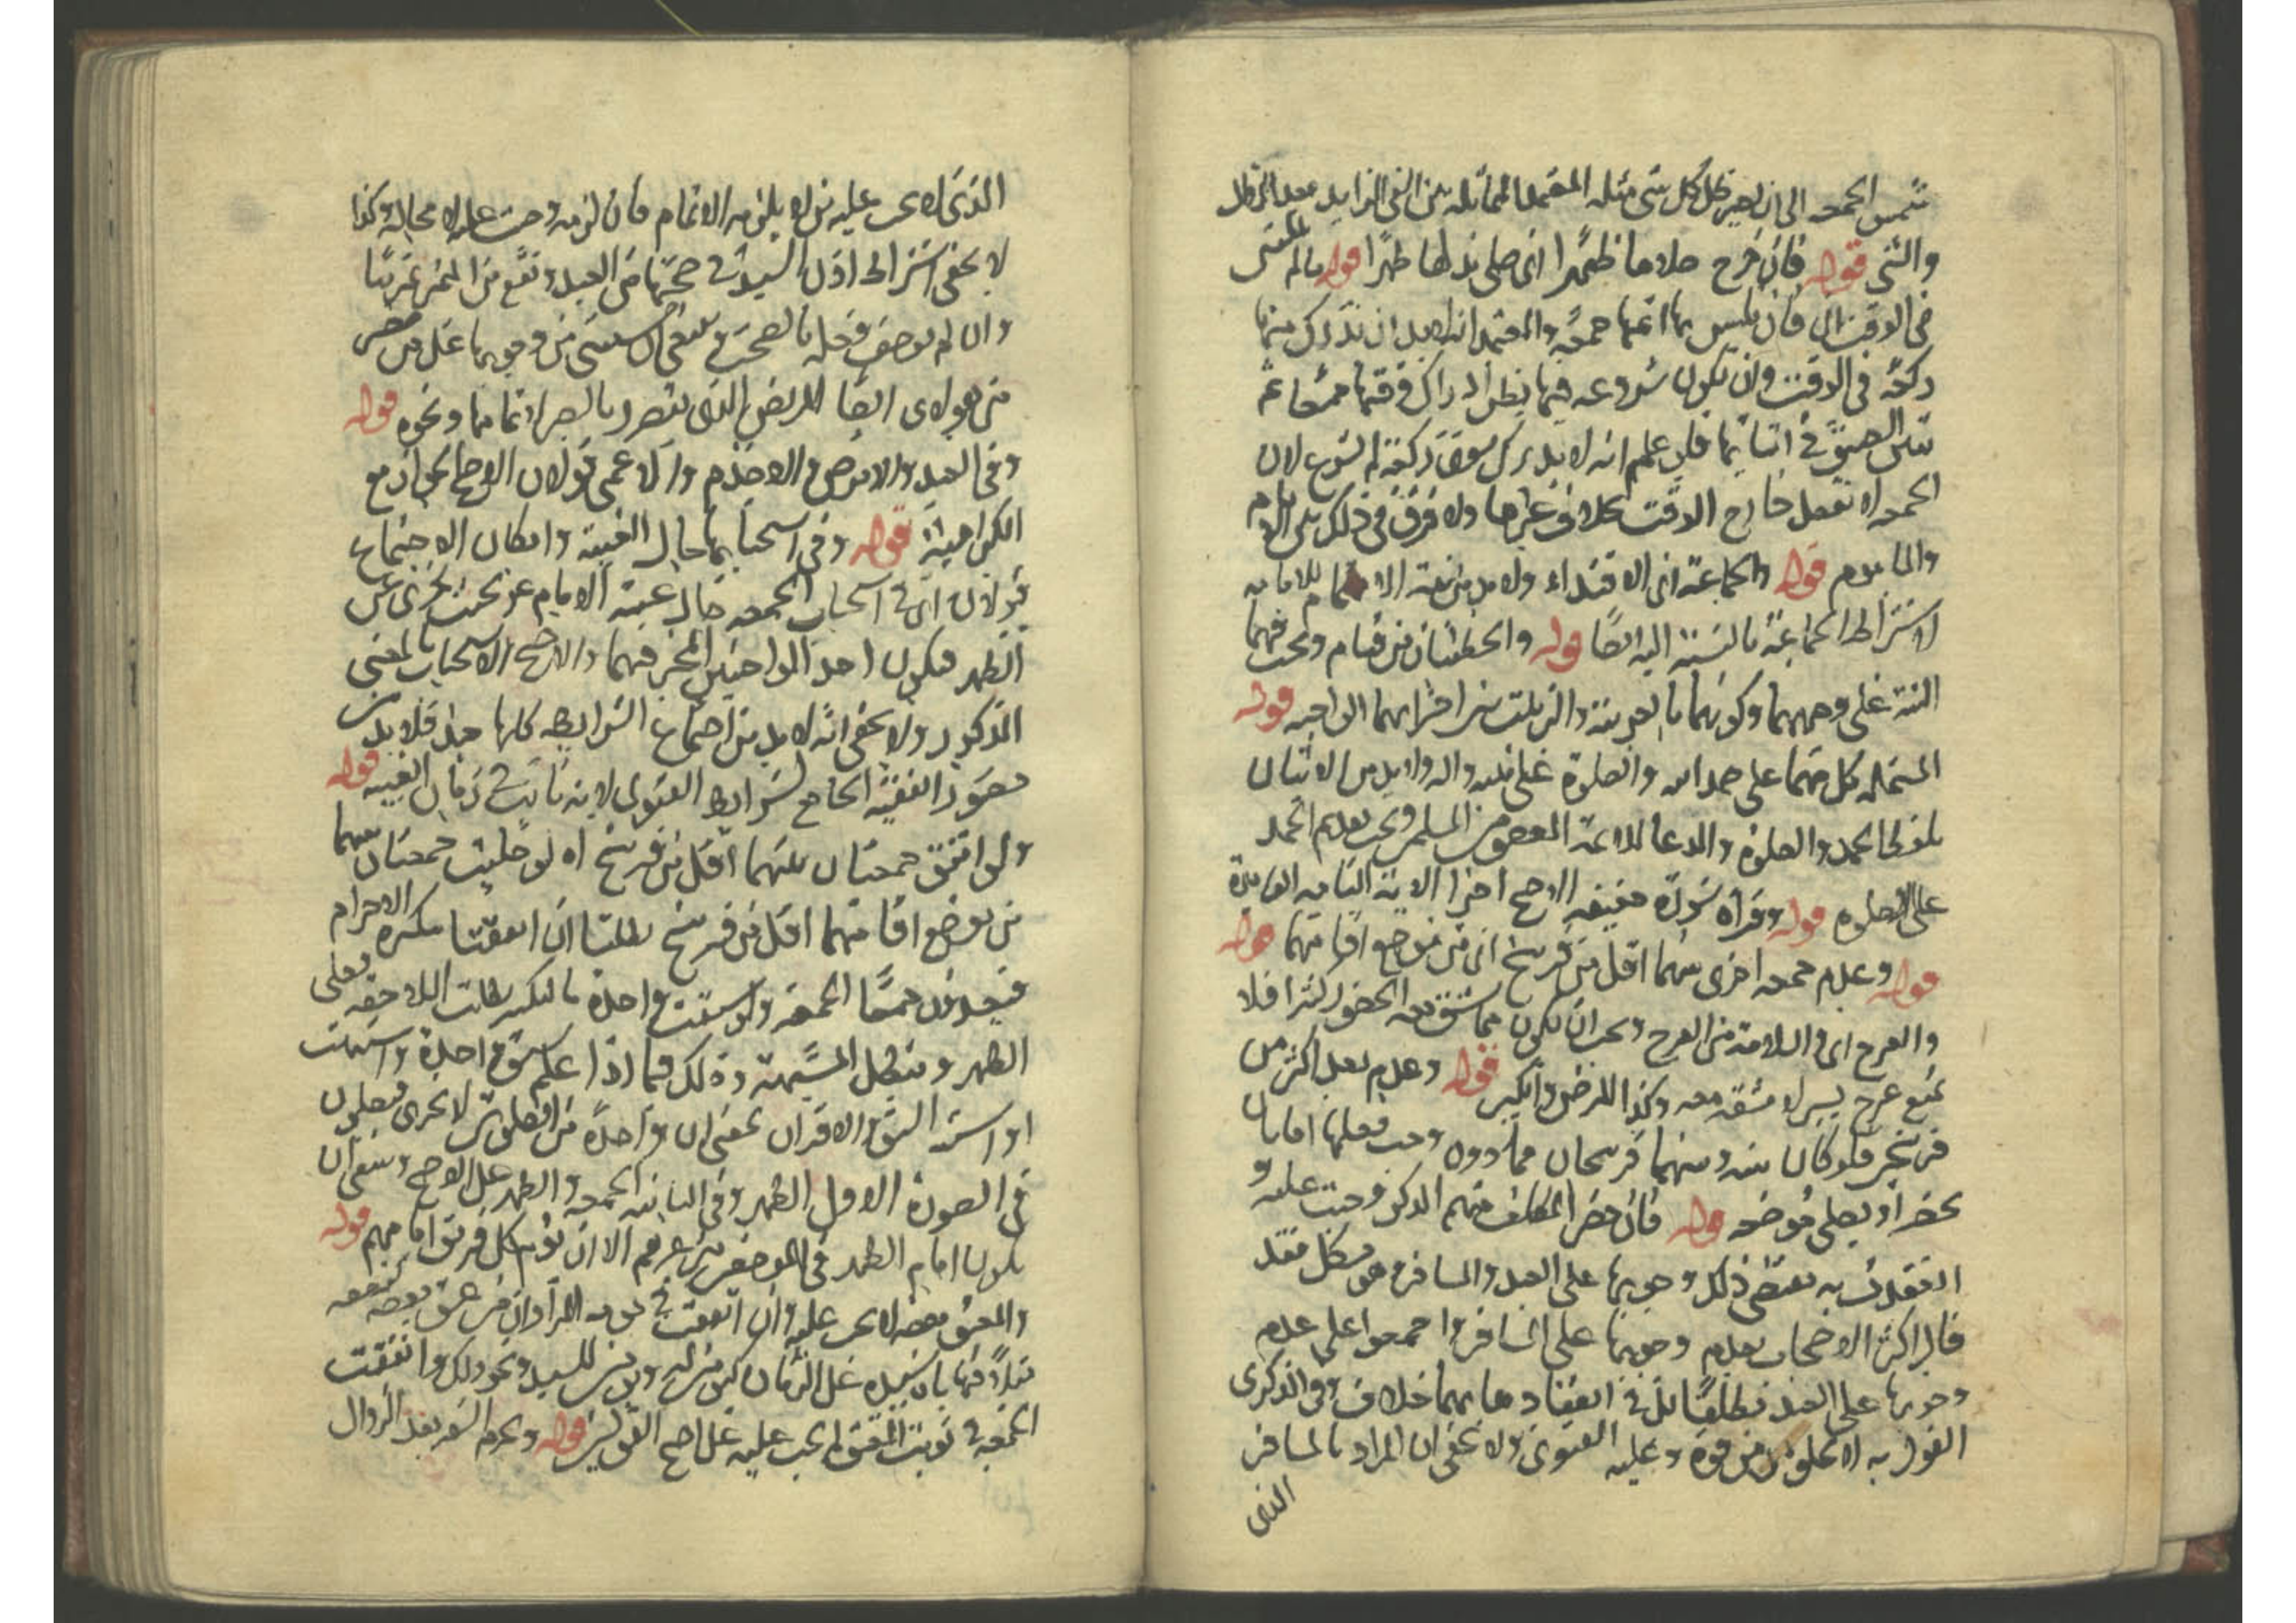 شمس الجمعة الى ان يصير ظل كل شى مثله المعتمد المماثلة بين الفى الزايد بعد الزوال
والشى قوله فان خرج صلاها ظهرا اى صلى بدلها ظهرا قوله ما لم يتلبس
فى الوقت اى فان تلبس بها اتمها جمعة والمعتمد انه لابد ان يدرك منها
ركعة فى الوقت وان يكون شروعه فيها بظن ادراك وقتها جمعا ثم
تبين الضيق فى اثنائها فلو علم انه لا يدرك سوى ركعة لم يشرع لان
الجمعة لا تفعل خارج الوقت بخلاف غيرها ولا فرق فى ذلك بين الامام
والماموم قوله والجماعة اى الاقتداء ولابد من نية الامام للامامة
لاشتراط الجماعة بالنسبة اليه ايضا قوله والخطبتان من قيام ويجب فيهما
النية على وجههما وكونهما بالعربية والترتيب بين اجزايهما الواجبة قوله
المشتملة كل منهما على حمد الله والصلوة على نبيه واله ولابد من الاتيان
بلفظ الحمد والصلوة والدعا لائمة المسلمين ويجب تقديم الحمد
على الصلوة قوله وقراة سورة خفيفة الارجح اجزا الاية التامة الفايدة
قوله وعدم جمعة اخرى بينهما اقل من فرسخ اى من موضع اقامتهما قوله
والعرج اى والسلامة من العرج ويجب ان يكون مما يشق معه الحضور كثيرا فلا
يمنع عرج يسير لا مشقة معه وكذا المرض والكبر قوله وعدم بعد اكثر من
فرسخين فلو كان بينه وبينهما فرسخان فما دون وجب فعلها اما بان
يحضر او يصلى موضعه قوله فان حضر المكلف منهم الذكر وجبت عليه و
انعقدت به مقتضى ذلك وجوبها على العبد والمسافر وهو مشكل فقد
قال اكثر الاصحاب بعدم وجوبها على المسافر واجمعوا على عدم
وجوبها على العبد مطلقا بل فى انعقادها بهما خلاف وفى الذكرى
القول به لا يخلو من قوة وعليه الفتوى ولا يخفى ان المراد بالمسافر
الذى
الذى لا يجب عليه من لا يلزمه الاتمام فان لزمه وجبت عليه لا محالة وكذا
لا يخفى اشتراط اذن السيد فى صحتها من العبد وتقع من المميز تمرينا
وان لم يوصف فعله بالصحة ينبغى ان يستثنى من وجوبها على من حضر
من هولاى ايضا المريض الذى يتضرر بالصبر لاتمامها ونحوه قوله
وفى العبد والابرص والاجذم والاعمى قولان الاوضح الجواز مع
الكراهية قوله وفى استحبابها حال الغيبة وامكان الاجتماع
قولان اى فى استحباب الجمعة حال غيبة الامام عم بحيث تجزى عن
الظهر فيكون احد الواجبين المخير فيهما والارجح الاستحباب بالمعنى
المذكور ولا يخفى انه لابد من اجتماع الشرايط كلها حينئذ فلابد من
حضور الفقيه الجامع لشرايط الفتوى لانه نايب فى زمان الغيبة قوله
ولو اتفق جمعتان بينهما اقل من فرسخ اى لو صليت جمعتان بينهما
من موضع اقامتهما اقل من فرسخ بطلتا ان اتفقتا بتكبيرة الاحرام
فيعيدون جمعا الجمعة ولو سبقت واحدة بالتكبير بطلت اللاحقة فيصلى
الظهر وتبطل المشتبهة وذلك فيما اذا علم سبق واحدة واشتبهت
او اشتبه السبق والاقتران بمعنى ان واحدة من الصلوتين لا تجزى فيصلون
فى الصورة الاولى الظهر وفى الثانية الجمعة والظهر على الاصح وينبغى ان
يكون امام الظهر فى الموضعين من غيرهم الا ان يؤم كل فريق امامهم قوله
والمعتق بعضه لا يجب عليه وان اتفقت فى نوبته المراد ان من عتق بعضه
مثلا فهاياه سيده على الزمان كيومين له ويومين للسيد ونحو ذلك واتفقت
الجمعة فى نوبة المعتق لم يجب عليه على اصح القولين قوله ويحرم السفر بعد الزوال